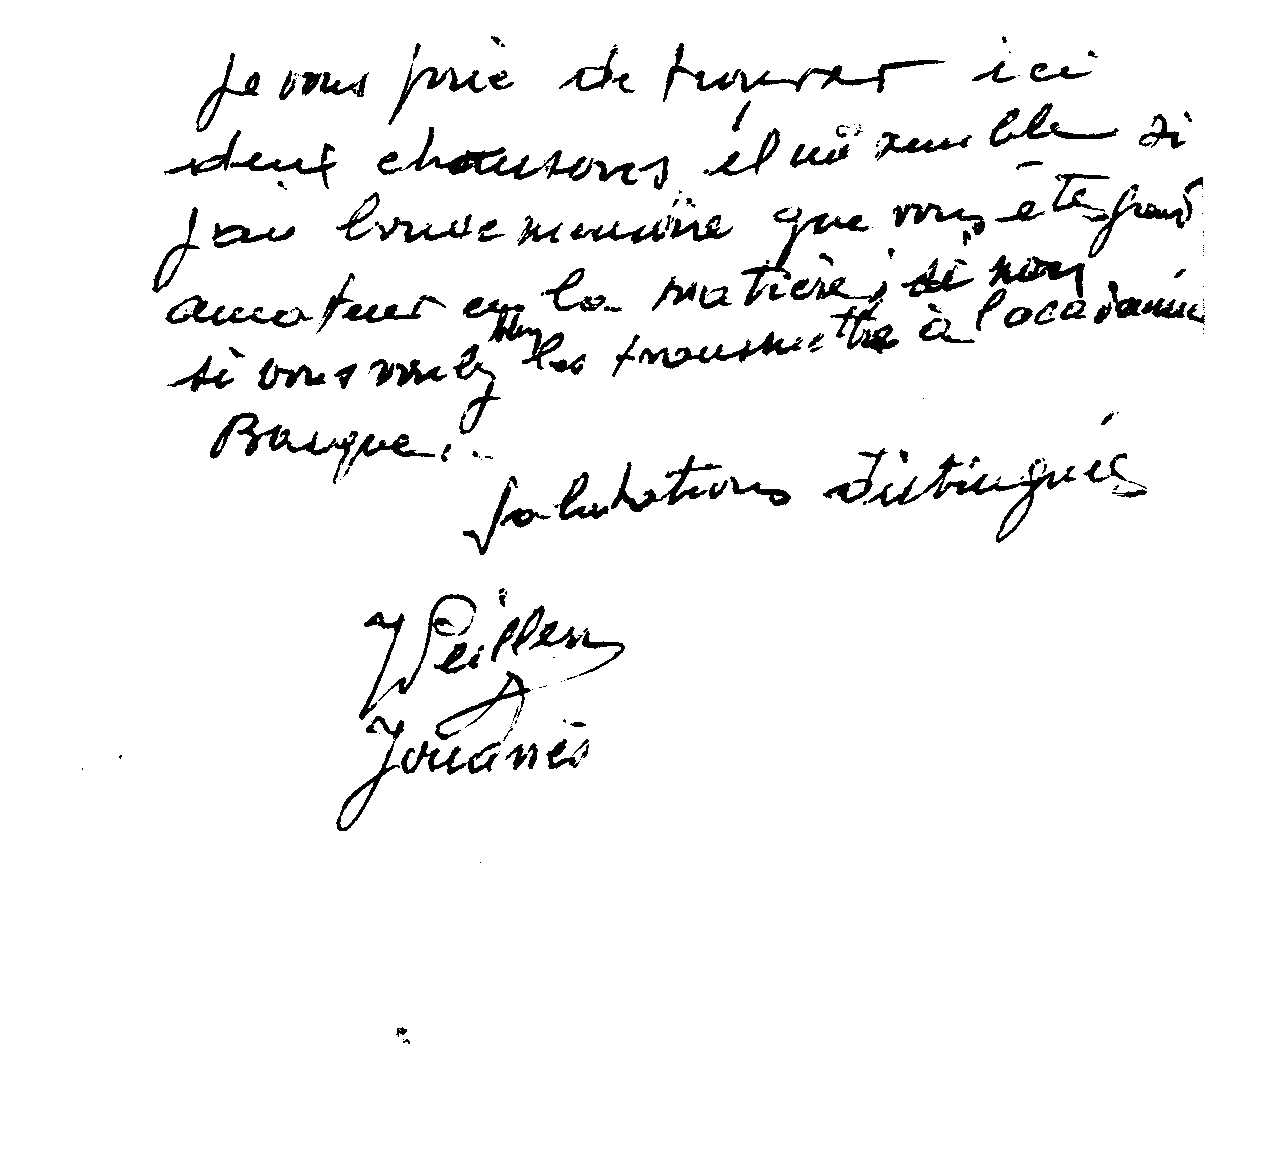 Je vous prie de trouver ici
deux chansons, il me semble si
j'ai bonne memoire que vous êtes grand
amateur en la matière; si non
si vous voulez bien les transmettre à l'acadamie
Basque.
Salutations distingués
J Peillen
Jouanès